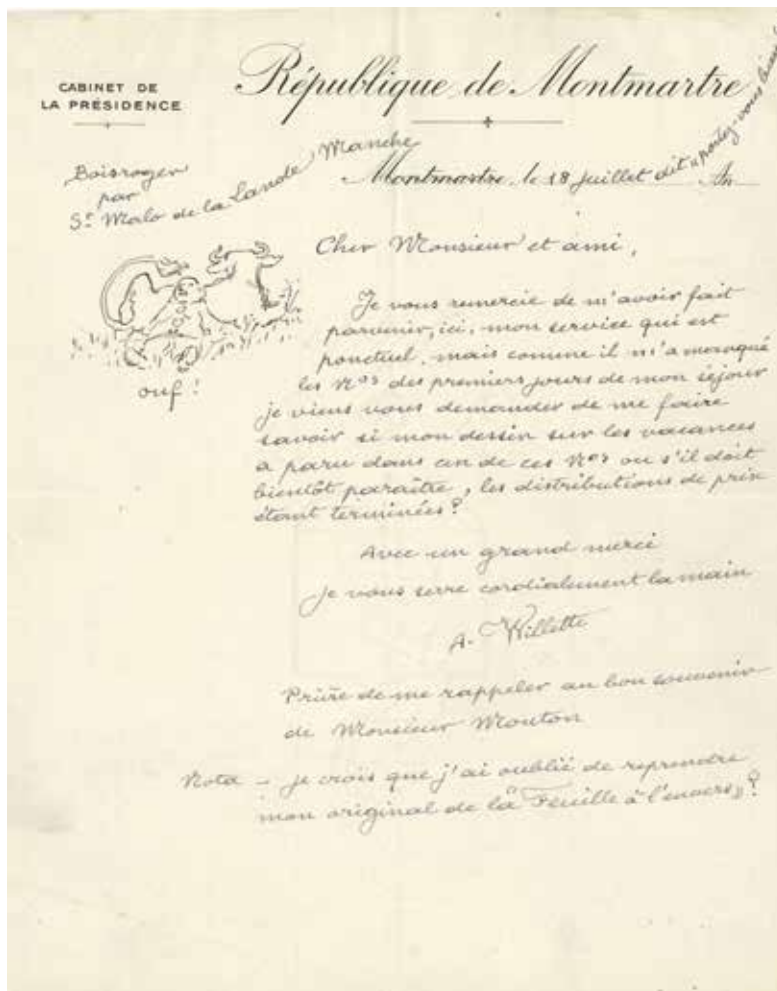 CABINET DE
LA PRÉSIDENCE
République de Montmartre
Boisroger
par
St Malo de la Lande Manche
Montmartre, le 18 juillet dit "portez-vous An
Cher Monsieur et ami,
Je vous remercie de m'avoir fait
parvenir, ici, mon service qui est
ponctuel, mais comme il m'a manqué
les Nos des premiers jours de mon séjour
je viens vous demander de me faire
savoir si mon dessin sur les vacances
a paru dans un de ces Nos ou s'il doit
bientôt paraître, les distributions de prix
étant terminées?
ouf!
Avec un grand merci
je vous serre cordialement la main
A. Willette
Prière de me rappeler au bon souvenir
de Monsieur Mouton
Nota – je crois que j'ai oublié de reprendre
mon original de la "Feuille à l'envers"?